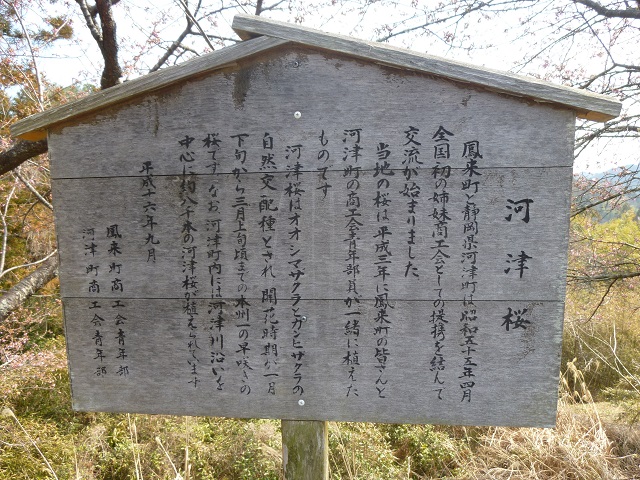 河津桜
鳳来町と静岡県河津町は昭和五十五年四月
全国初の姉妹商工会としての提携を結んで
交流が始まりました
当地の桜は平成三年に鳳来町の皆さんと
河津町の商工会青年部員が一緒に植えた
ものです
河津桜はオオシマザクラとカンヒザクラの
自然交配種とされ 開花時期が一月
下旬から三月上旬頃までの本州一の早咲きの
桜です なお 河津町内には河津川沿いを
中心に約八千本の河津桜が植えられてます
平成十六年九月
鳳来町商工会青年部
河津町商工会青年部